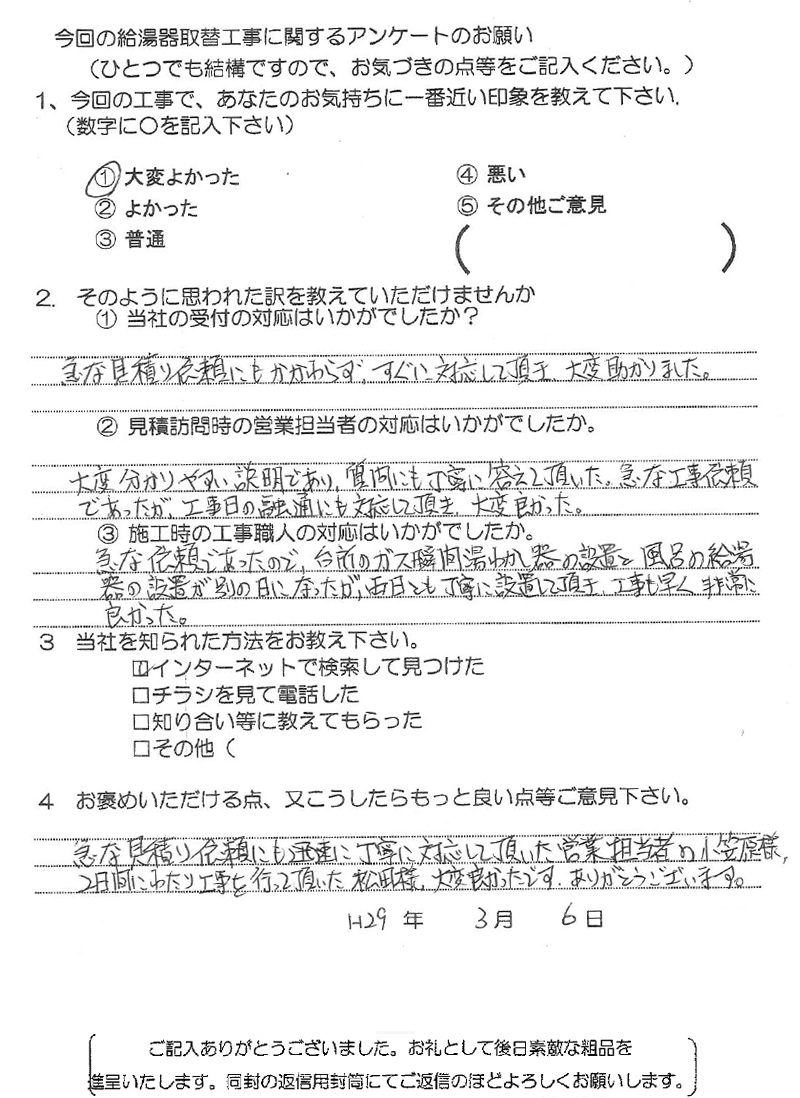 今回の給湯器取替工事に関するアンケートのお願い
（ひとつでも結構ですので、お気づきの点等をご記入ください。）
1、今回の工事で、あなたのお気持ちに一番近い印象を教えて下さい.
（数字に〇を記入下さい）
① 大変よかった
② よかった
③ 普通
④ 悪い
⑤ その他ご意見
（ ）
2. そのように思われた訳を教えていただけませんか
① 当社の受付の対応はいかがでしたか？
急な見積り依頼にもかかわらず、すぐに対応して頂き、大変助かりました。
② 見積訪問時の営業担当者の対応はいかがでしたか。
大変分かりやすい説明であり、質問にも丁寧に答えて頂いた。急な工事依頼
であったが、工事日の融通にも対応して頂き、大変良かった。
③ 施工時の工事職人の対応はいかがでしたか。
急な依頼であったので、台所のガス瞬間湯わかし器の設置と風呂の給湯
器の設置が別の日になったが、両日とも丁寧に設置して頂き、工事も早く、非常に
良かった。
3 当社を知られた方法をお教え下さい。
☑インターネットで検索して見つけた
□チラシを見て電話した
□知り合い等に教えてもらった
□その他（
4 お褒めいただける点、又こうしたらもっと良い点等ご意見下さい。
急な見積り依頼にも迅速に丁寧に対応して頂いた営業担当者の小笠原様,
2日間にわたり工事を行って頂いた松田様、大変良かったです。ありがとうございます。
H29 年 3月 6日
ご記入ありがとうございました。お礼として後日素敵な粗品を
進呈いたします。同封の返信用封筒にてご返信のほどよろしくお願いします。